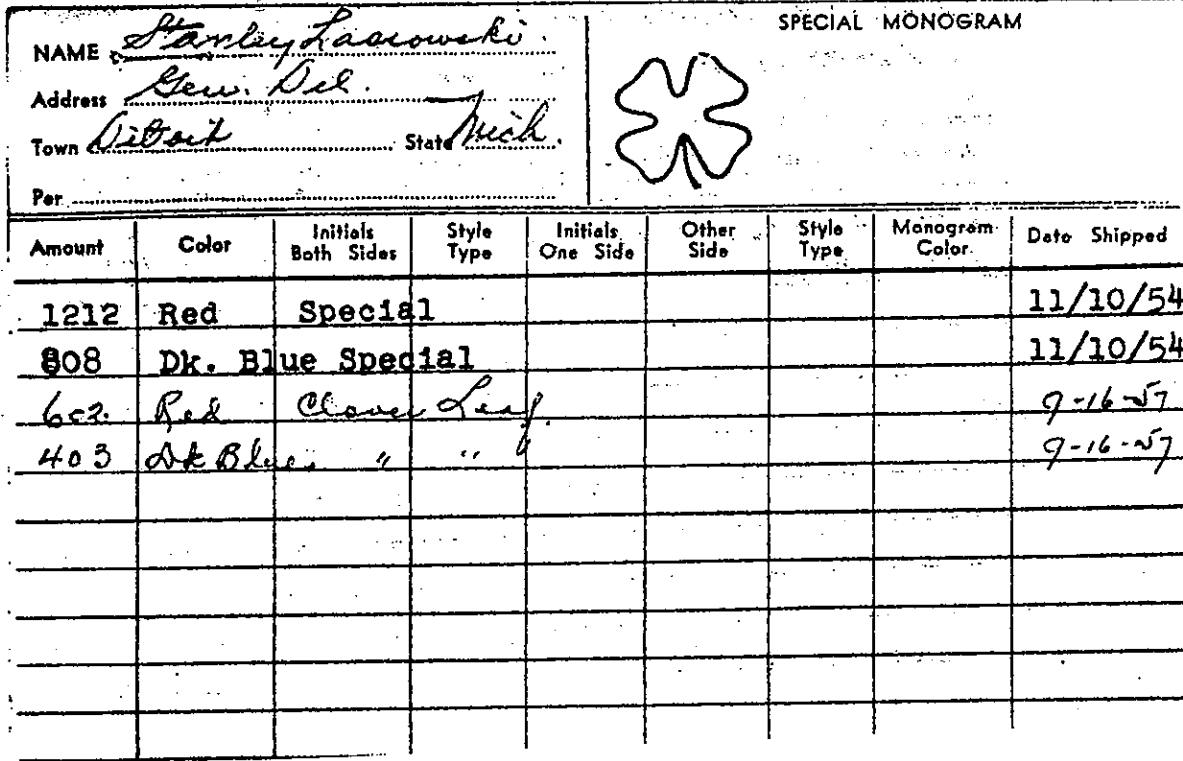 SPECIAL MONOGRAM
NAME Stanley
Address Gen. Del.
Town Detroit State Mich.
Per
Amount Color Initials Both Sides Style Type Initials One Side Other Side Style Type Monogram Color Date Shipped
1212 Red Special 11/10/54
808 Dk. Blue Special 11/10/54
602 Red Clover Leaf. 9-16-57
403 Dk Blue " " 9-16-57